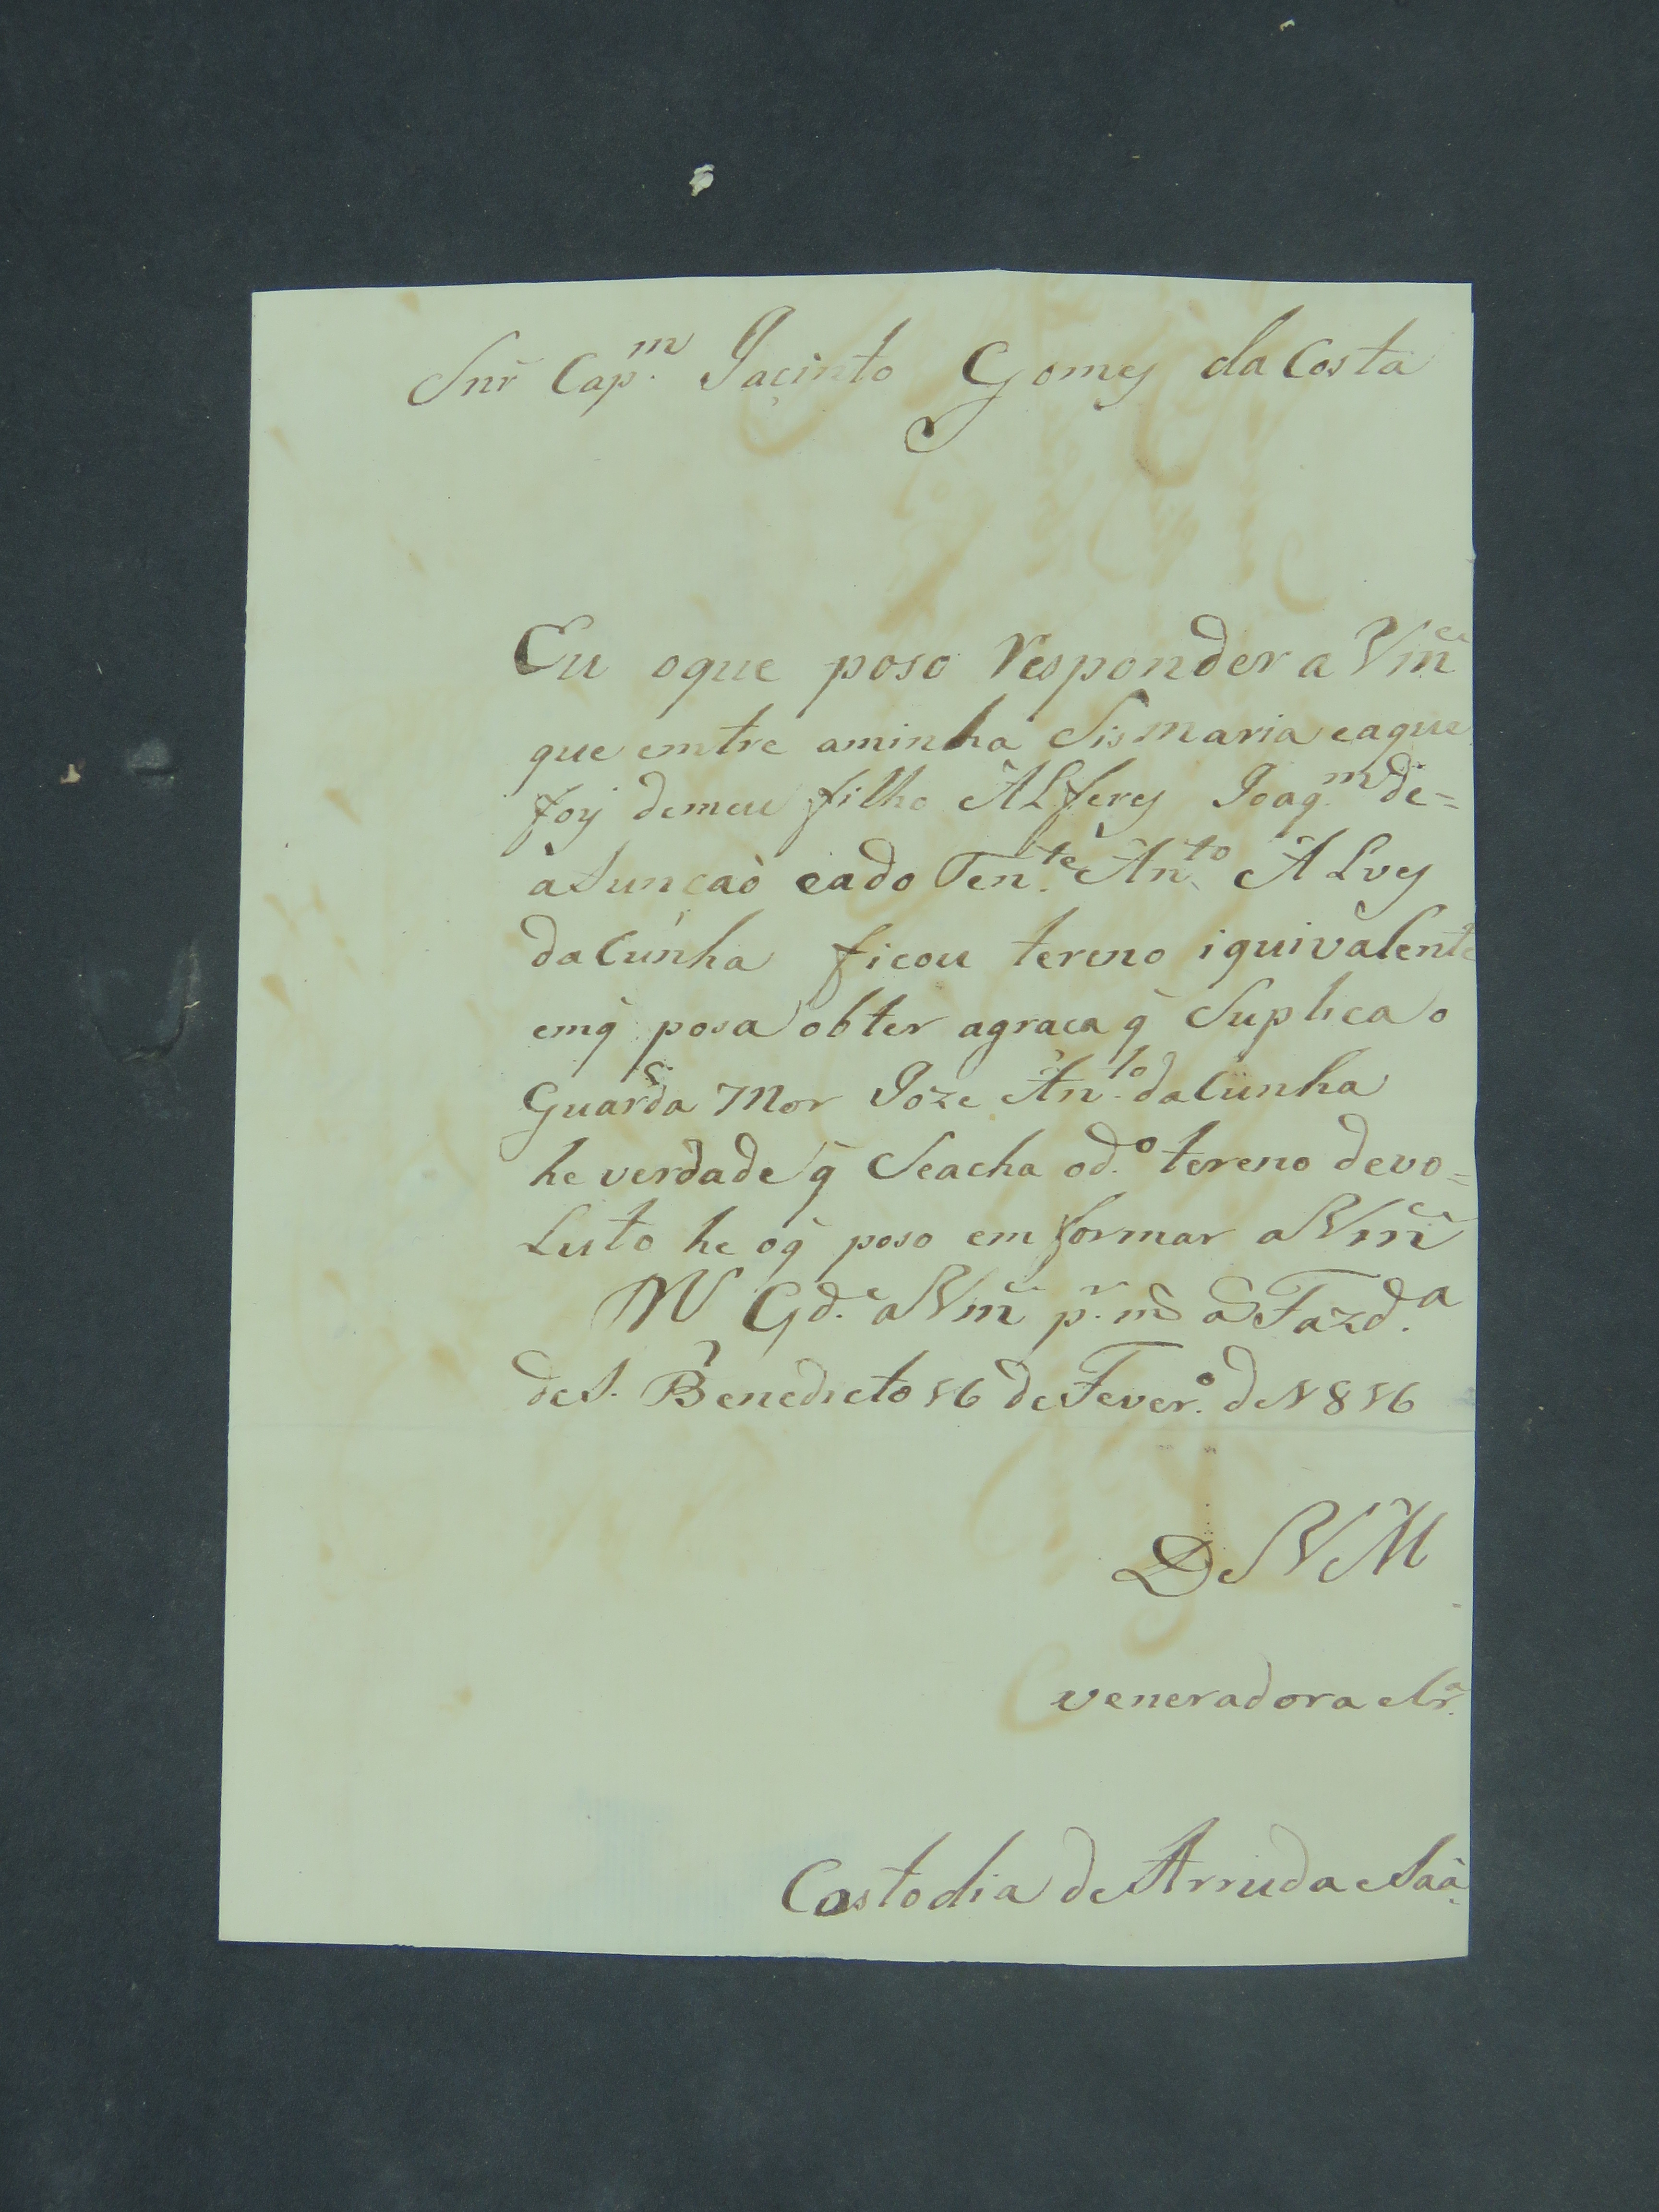 Snr̃ Cap.m Jacinto Gomes da Costa
Eu oque poso responder a Vm̃ce
que emtre aminha Sismaria eaque
foy demeu filho Alferes Joaq.m de=
àSuncaò eado Ten.te An.to Alves
daCunha ficou tereno iquivalente
emq̃ posa obter agraca q̃ Suplica o
Guarda Mor Jôze An.to daCunha
he verdade q̃ Seacha od.o tereno devo=
Luto he oq̃ poso emformar a Vm̃ce
N Gd.e a Vm̃ce p.r m.s a.s Fazd.a
de S. Benedicto 16 de Fever.o de 1816
D V M
veneradora Cr.a
Costodia de Arruda e Saà